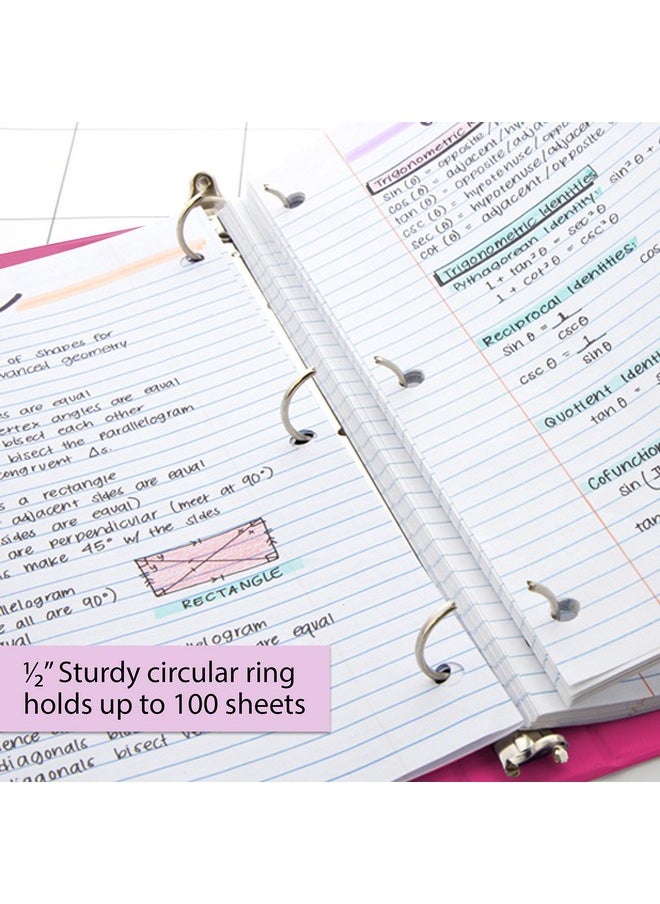 of shapes for
advanced geometry
es are equal
vertex angles are equal
bisect each other
bisect the parallelogram
congruent Δs.
s a rectangle
adjacent sides are equal
sides are equal)
are perpendicular (meet at 90°)
s make 45° w/ the sides
RECTANGLE
allelogram
e all are 90°)
ual
llelogram
are equal
½" Sturdy circular ring
holds up to 100 sheets
diagonals
diagonals bisect
Trigonometric
sin (θ) = opposite/
cos (θ) = adjacent/hy
tan (θ) = opposite/adja
csc (θ) = hypotenuse/oppo
sec (θ) = hypotenuse/adjacent
cot (θ) = adjacent/opposite
Trigonometric Identities
Pythagorean Identity:
sin²θ +
1 + tan²θ = sec²θ
1 + cot²θ = csc²θ
Reciprocal Identities:
sin θ = 1/cscθ
cos
csc θ = 1/sinθ
Quotient Identi
tan θ = s
Cofunction
sin(
tan